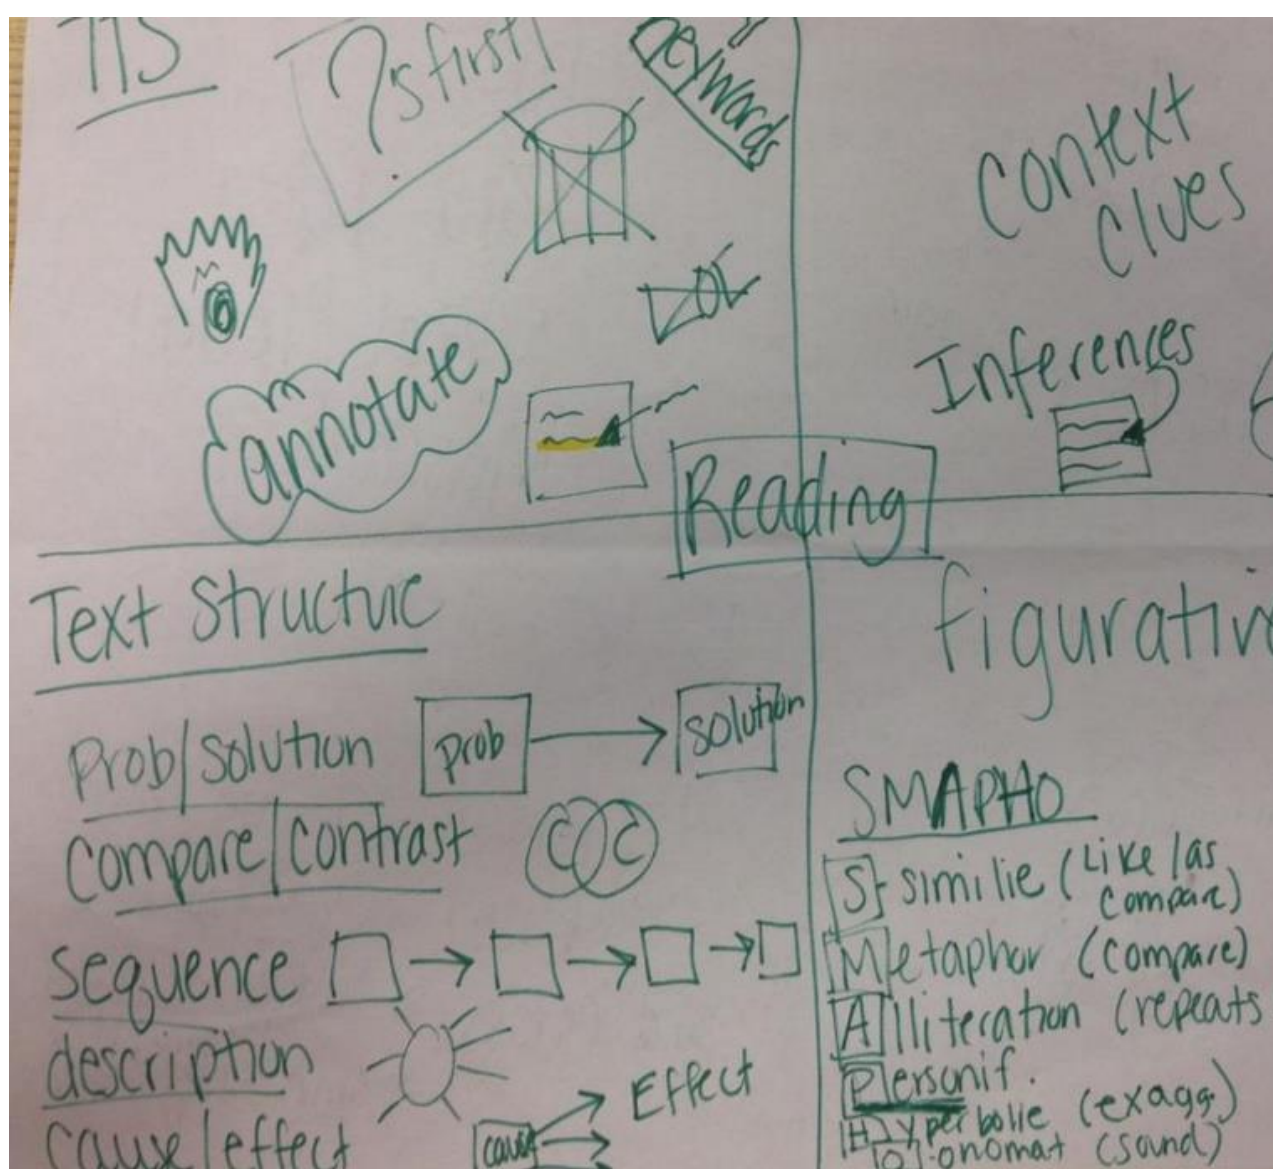 ?s first
keywords
annotate
context
clues
Inferences
Reading
Text Structure
Prob/solution
prob
solution
compare/contrast
C C
sequence
description
cause/effect
cause
Effect
figurativ
SMAPHO
S-similie (like/as
compare)
Metaphor (compare)
Alliteration (repeats
Personif.
Hyperbolie (exagg.)
Onomat (sound)